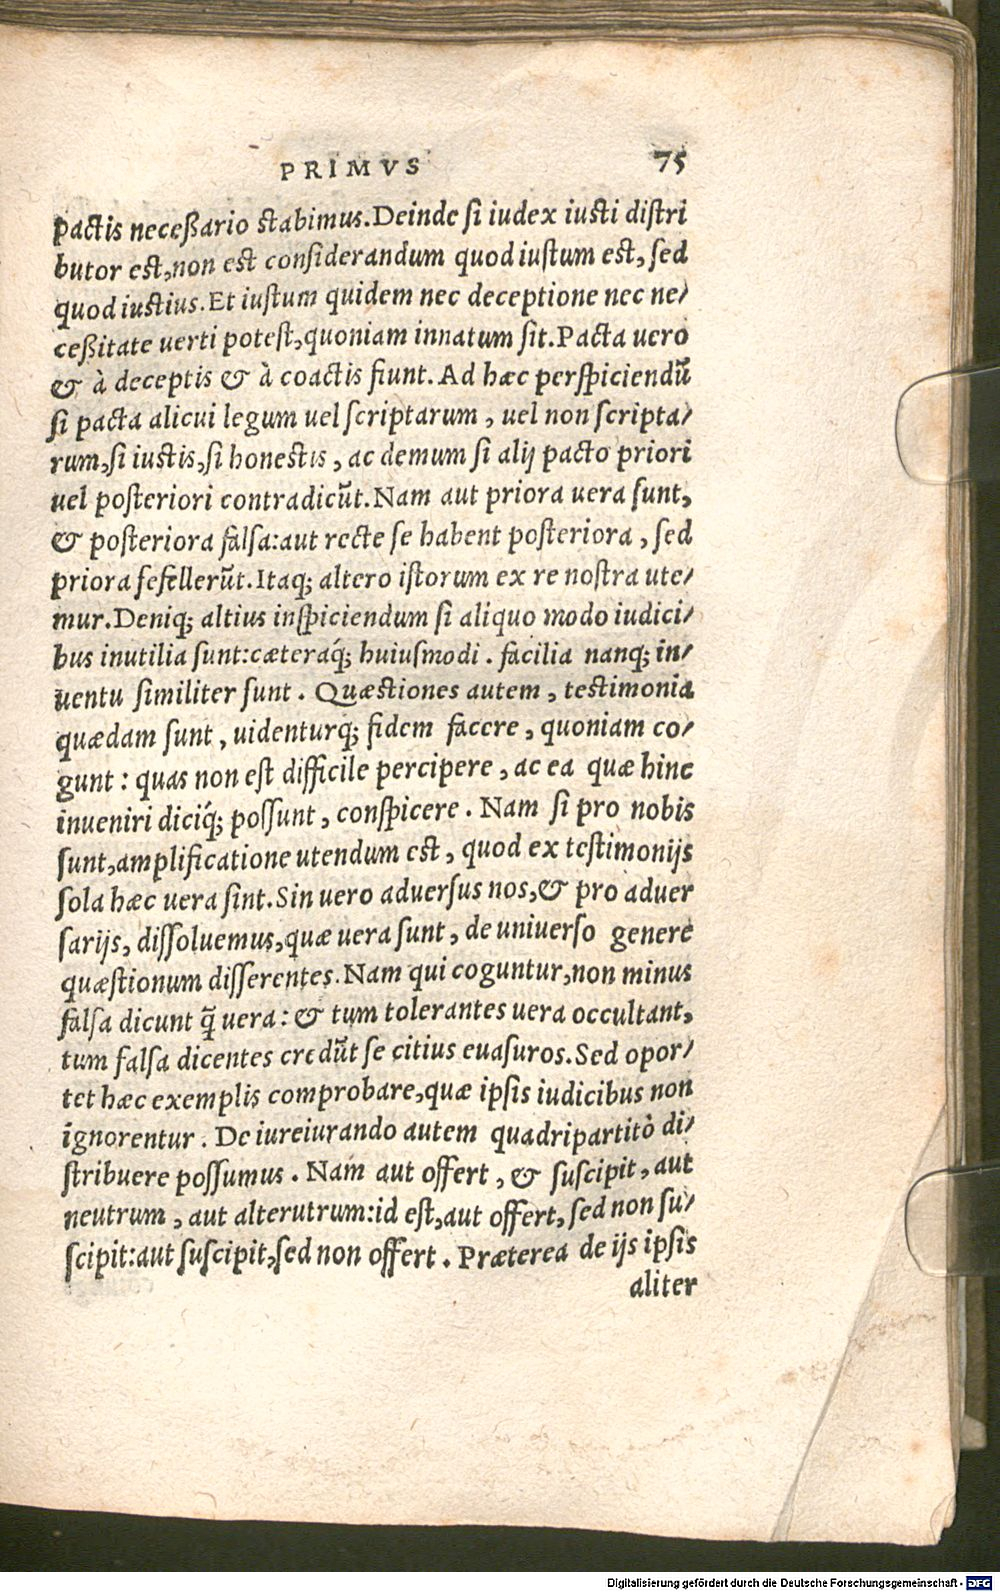 PRIMVS 75
pactis neceßario stabimus.Deinde si iudex iusti distri
butor est,non est considerandum quod iustum est, sed
quod iustius.Et iustum quidem nec deceptione nec ne/
ceßitate uerti potest,quoniam innatum sit.Pacta uero
& à deceptis & à coactis fiunt.Ad hæc perspiciendũ
si pacta alicui legum uel scriptarum, uel non scripta/
rum,si iustis,si honestis, ac demum si alij pacto priori
uel posteriori contradicũt.Nam aut priora uera sunt,
& posteriora falsa:aut recte se habent posteriora, sed
priora fefellerũt.Itaq; altero istorum ex re nostra ute/
mur.Deniq; altius inspiciendum si aliquo modo iudici/
bus inutilia sunt:cæteraq́; huiusmodi. facilia nanq; in/
uentu similiter sunt. Quæstiones autem, testimonia
quædam sunt, uidenturq; fidem facere, quoniam co/
gunt: quas non est difficile percipere, ac ea quæ hinc
inueniri diciq́; possunt, conspicere. Nam si pro nobis
sunt,amplificatione utendum est, quod ex testimonijs
sola hæc uera sint.Sin uero aduersus nos,& pro aduer
sarijs, dissoluemus,quæ uera sunt, de uniuerso genere
quæstionum disserentes.Nam qui coguntur,non minus
falsa dicunt q̃ uera: & tum tolerantes uera occultant,
tum falsa dicentes credũt se citius euasuros.Sed opor/
tet hæc exemplis comprobare,quæ ipsis iudicibus non
ignorentur. De iureiurando autem quadripartitò di/
stribuere possumus. Nam aut offert, & suscipit, aut
neutrum, aut alterutrum:id est,aut offert, sed non su/
scipit:aut suscipit,sed non offert. Præterea de ijs ipsis
aliter
Digitalisierung gefördert durch die Deutsche Forschungsgemeinschaft - DFG